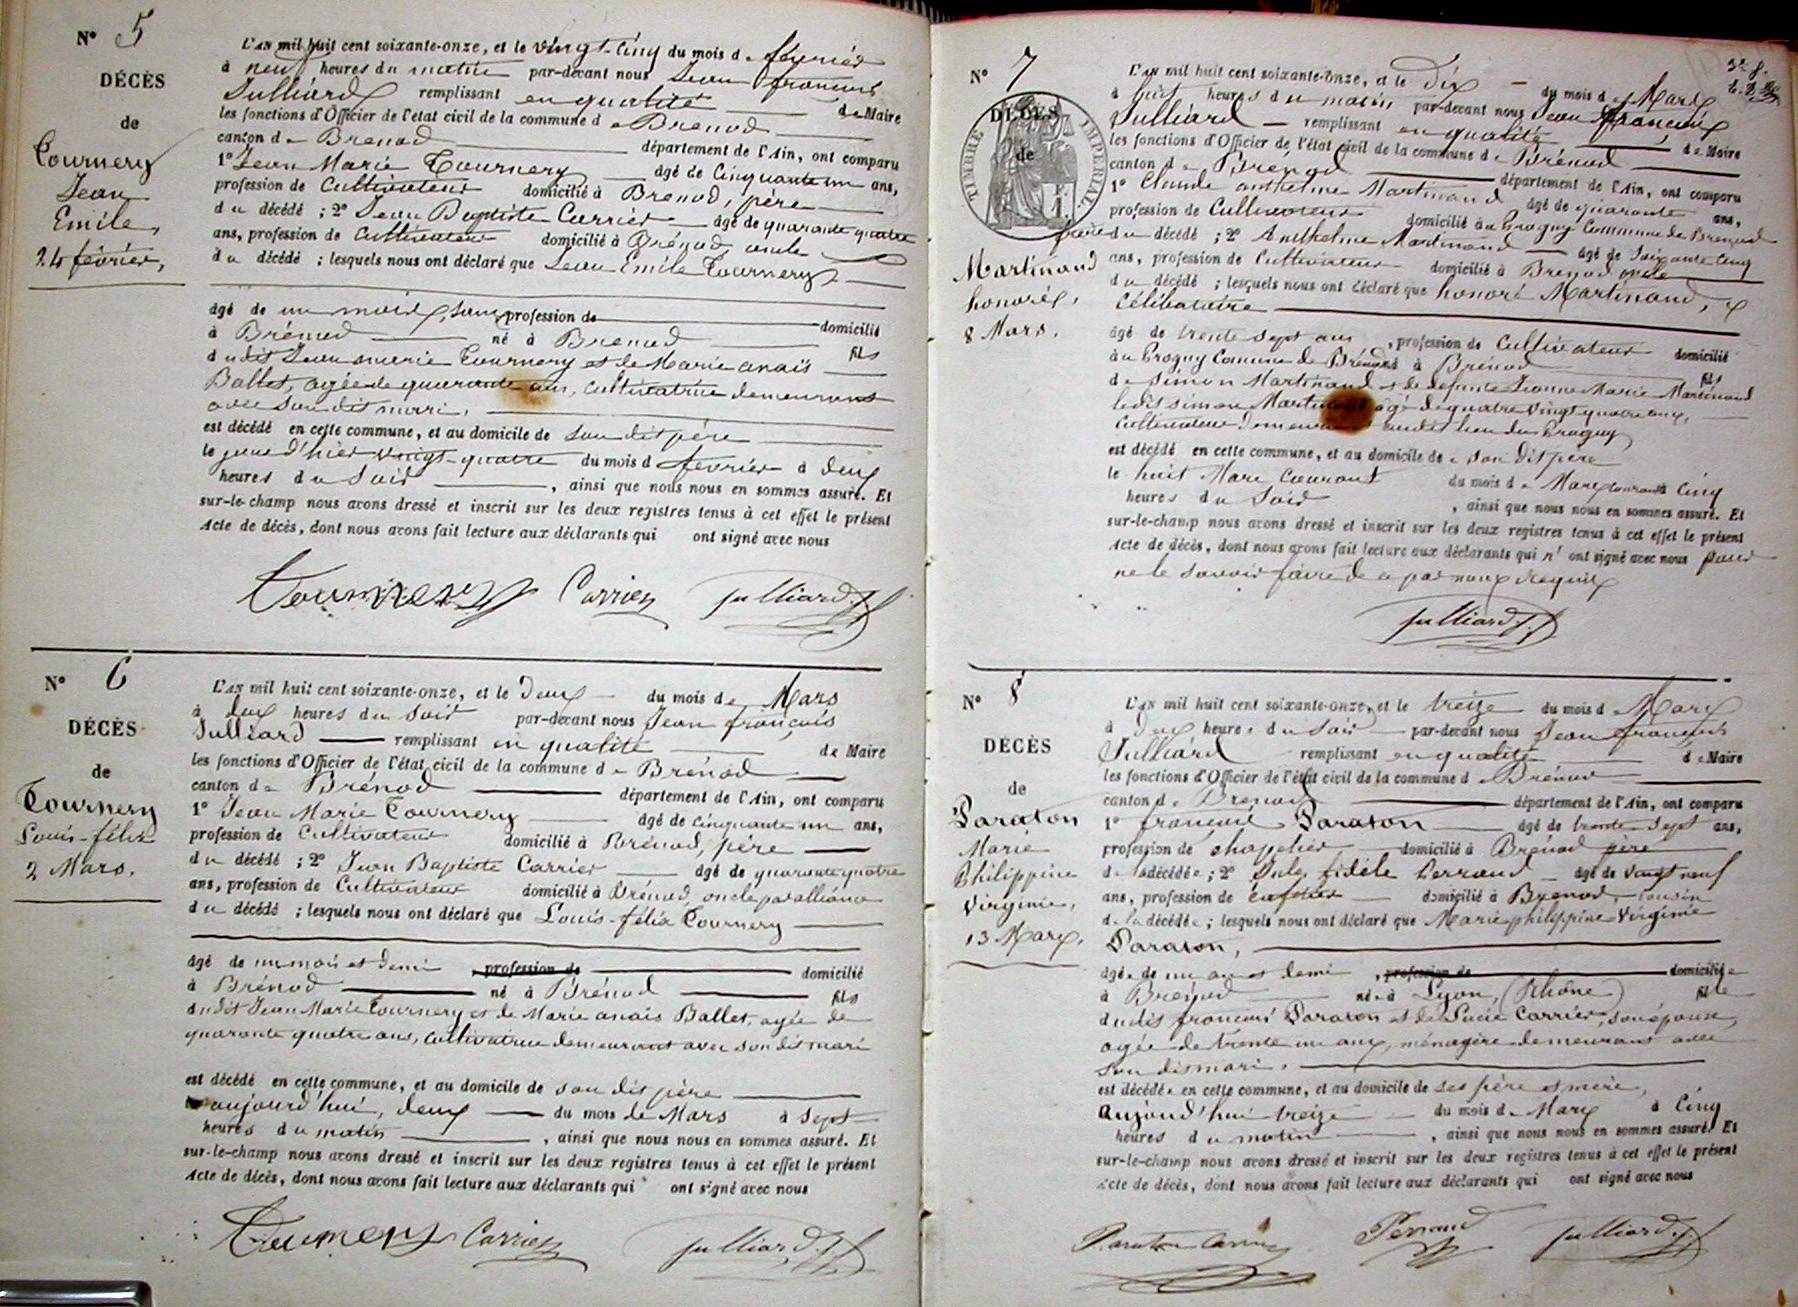 N° 5
DÉCÈS
de
Tournery
Jean
Emile,
24 février,
L'AN mil huit cent soixante-onze, et le vingt-cinq du mois de février
à neuf heures du matin par-devant nous Jean françois
Julliard remplissant en qualité de Maire
les fonctions d'Officier de l'état civil de la commune de Brenod
canton de Brenod département de l'Ain, ont comparu
1° Jean Marie Tournery âgé de Cinquante un ans,
profession de Cultivateur domicilié à Brenod, père
du décédé ; 2° Jean Baptiste Carrier âgé de quarante quatre
ans, profession de Cultivateur domicilié à Brénod, oncle
du décédé ; lesquels nous ont déclaré que Jean Emile Tournery
âgé de un mois, sans profession de domicilié
à Brénod né à Brenod fils
dudit Jean marie Tournery et de Marie anaïs
Ballet, agée de quarante ans, cultivatrice demeurant
avec son dit mari,
est décédé en cette commune, et au domicile de son dit père
le jour d'hier vingt-quatre du mois de février à deux
heures du Soir , ainsi que nous nous en sommes assuré. Et
sur-le-champ nous avons dressé et inscrit sur les deux registres tenus à cet effet le présent
Acte de décès, dont nous avons fait lecture aux déclarants qui ont signé avec nous
Tournery Carrier Julliard J.f
N° 6
DÉCÈS
de
Tournery
Louis-félix
2 Mars.
L'AN mil huit cent soixante-onze, et le Deux du mois de Mars
à deux heures du Soir par-devant nous Jean françois
Julliard remplissant en qualité de Maire
les fonctions d'Officier de l'état civil de la commune de Brénod
canton de Brénod département de l'Ain, ont comparu
1° Jean Marie Tournery âgé de cinquante un ans,
profession de Cultivateur domicilié à Brénod, père
du décédé ; 2° Jean Baptiste Carrier âgé de quarante quatre
ans, profession de Cultivateur domicilié à Brénod, oncle par alliance
du décédé ; lesquels nous ont déclaré que Louis-félix Tournery
âgé de un mois et demi profession de domicilié
à Brénod né à Brénod fils
dudit Jean Marie Tournery et de Marie anaïs Ballet, agée de
quarante quatre ans, cultivatrice demeurant avec son dit mari
est décédé en cette commune, et au domicile de son dit père
aujourd'hui, deux du mois de Mars à Sept
heures du matin , ainsi que nous nous en sommes assuré. Et
sur-le-champ nous avons dressé et inscrit sur les deux registres tenus à cet effet le présent
Acte de décès, dont nous avons fait lecture aux déclarants qui ont signé avec nous
Tournery Carrier Julliard J.f
N° 7
TIMBRE IMPERIAL
DÉCÈS
de
Martinand
honoré,
8 Mars.
L'AN mil huit cent soixante-onze, et le Dix du mois de Mars
à huit heures du matin par-devant nous Jean françois
Julliard remplissant en qualité de Maire
les fonctions d'Officier de l'état civil de la commune de Brénod
canton de Brénod département de l'Ain, ont comparu
1° Claude anthelme Martinand âgé de quarante ans,
profession de Cultivateur domicilié au Brogny Commune de Brenod
frère du décédé ; 2° Anthelme Martinand âgé de Soixante cinq
ans, profession de Cultivateur domicilié à Brenod oncle
du décédé ; lesquels nous ont déclaré que honoré Martinand,
Célibataire
âgé de trente sept ans , profession de Cultivateur domicilié
au Brogny Commune de Brénod né à Brénod fils
de Simon Martinand et de défunte Jeanne Marie Martinand
ledit simon Martinand agé de quatre vingt quatre ans,
cultivateur demeurant audit lieu du Brogny
est décédé en cette commune, et au domicile de son dit père
le huit Mars Courant du mois de Mars courant à Cinq
heures du Soir , ainsi que nous nous en sommes assuré. Et
sur-le-champ nous avons dressé et inscrit sur les deux registres tenus à cet effet le présent
Acte de décès, dont nous avons fait lecture aux déclarants qui n'ont signé avec nous pour
ne le savoir faire de ce par nous requis
Julliard J.f
N° 8
DÉCÈS
de
Paraton
Marie
Philippine
Virginie,
13 Mars.
L'AN mil huit cent soixante-onze, et le treize du mois de Mars
à Deux heures du Soir par-devant nous Jean françois
Julliard remplissant en qualité de Maire
les fonctions d'Officier de l'état civil de la commune de Brénod
canton de Brenod département de l'Ain, ont comparu
1° françois Paraton âgé de trente-Sept ans,
profession de chapelier domicilié à Brénod père
de la décédée ; 2° Jules fidèle Perraud âgé de vingt neuf
ans, profession de domicilié à Brenod, cousin
de la décédée ; lesquels nous ont déclaré que Marie philippine Virginie
Paraton,
âgée de un an et demi , profession de domiciliée
à Brénod née à Lyon, (Rhône) fille
dudit françois Paraton et de Lucie Carrier, son épouse,
agée de trente un ans, ménagère demeurant avec
son dit mari.
est décédée en cette commune, et au domicile de ses père et mère,
aujourd'hui treize du mois de Mars à Cinq
heures du matin , ainsi que nous nous en sommes assuré. Et
sur-le-champ nous avons dressé et inscrit sur les deux registres tenus à cet effet le présent
Acte de décès, dont nous avons fait lecture aux déclarants qui ont signé avec nous
Paraton Carrier Perraud Julliard J.f